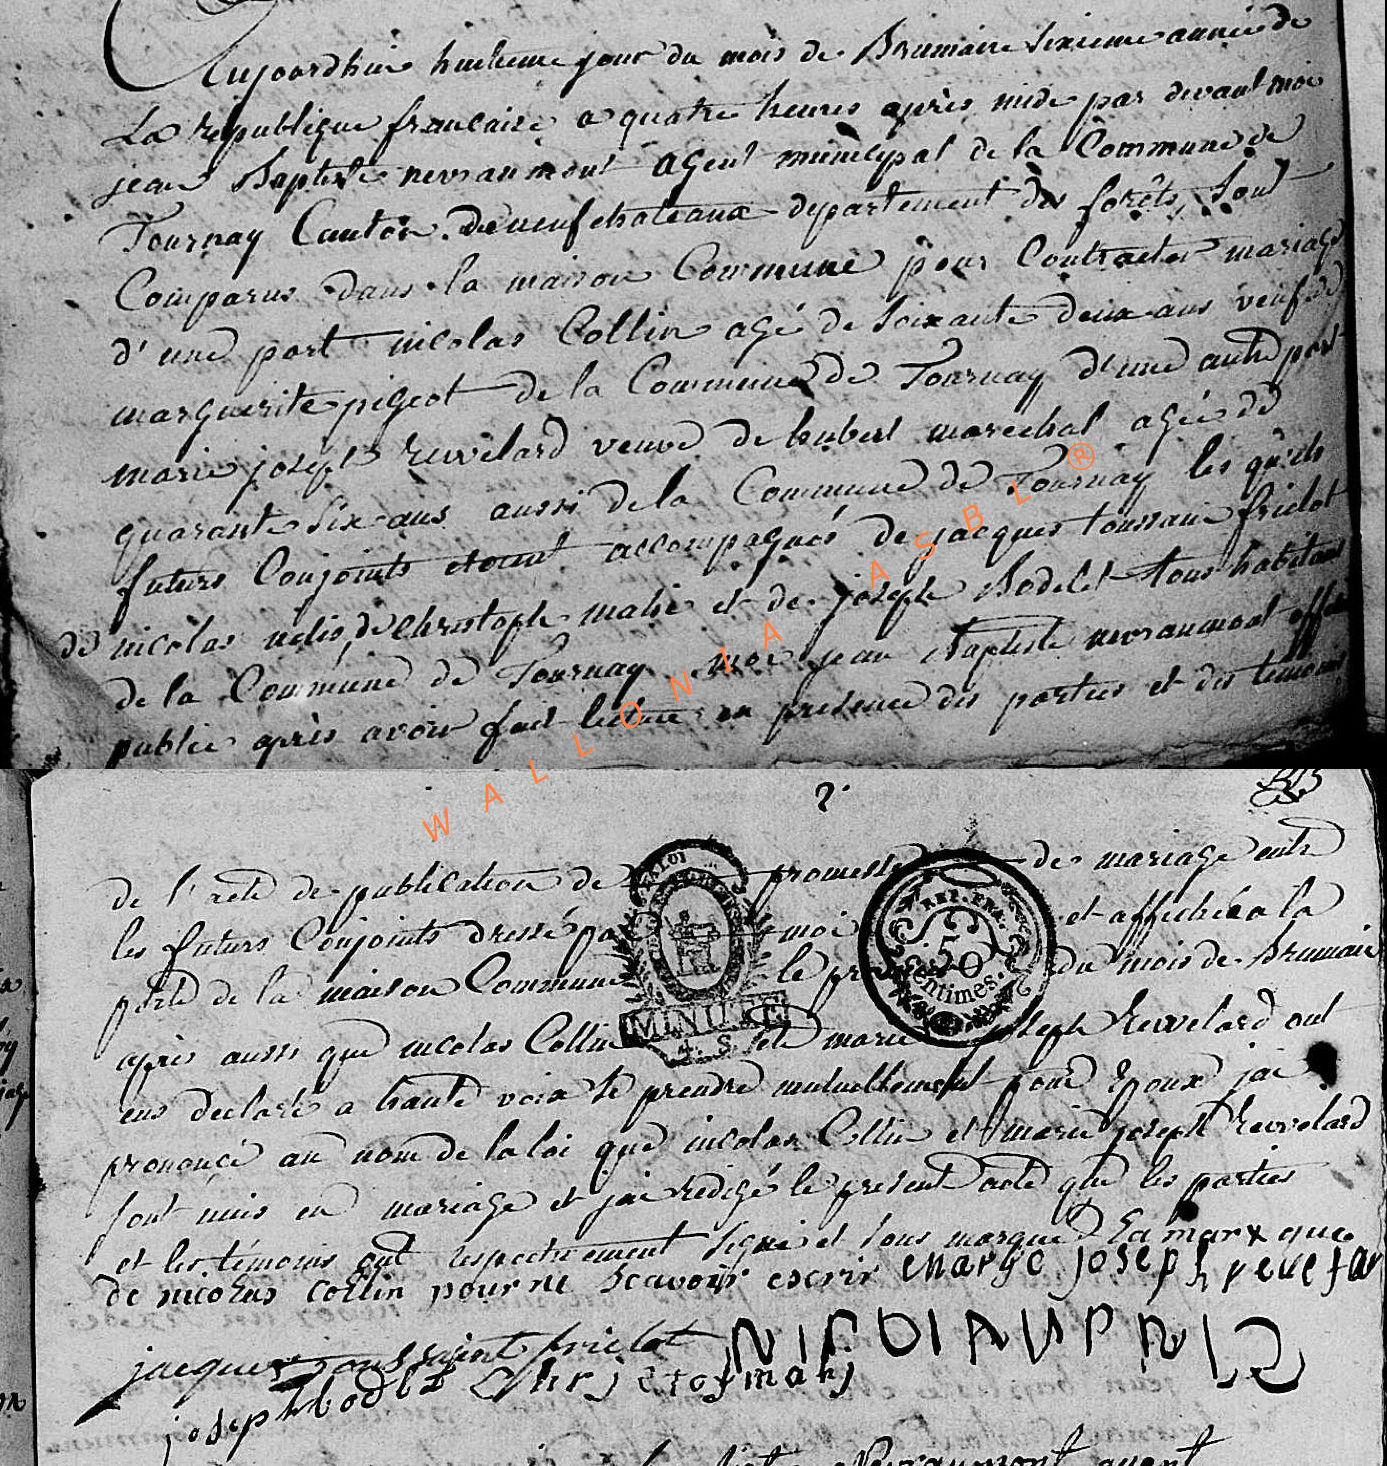 Aujourdhui huitieme jour du mois de Brumaire sixieme année de
La republique francaise a quatre heures après midi par devant moi
jean Baptiste nevraumont agent municipal de la Commune de
Tournay Canton de neufchateaux departement des forêts, sont
Comparus dans la maison Commune pour Contracter mariage
d'une part nicolas Collin agé de soixante deux ans veuf de
marguerite pigeot de la Commune de Tournay d'une autre part
marie joseph revvelard veuve de hubert marechal agée de
quarante six ans aussi de la Commune de Tournay les quels
futurs Conjoints etant accompagnés de jacques toussain friclot
de nicolas nelis, de christophe mahi et de joseph Bodelet tous habitans
de la Commune de Tournay moi jean Baptiste nevraumont officier
public après avoir fait lecture en presence des parties et des temoins
WALLONIA ASBL ®
2.
de l'acte de publication de promesse de mariage entre
les futurs Conjoints dressé par moi et affichée a la
porte de la maison Commune le premier du mois de Brumaire
après aussi que nicolas Collin et marie joseph revvelard ont
eus declaré a haute voix se prendre mutuellement pour Epoux jai
prononcé au nom de la loi que nicolas Collin et marie joseph revvelard
sont unis en mariage et jai redigé le present acte que les parties
et les témoins ont respectivement signé et sous marqué La marx que
de nicolas collin pour ne scavoir escrir marye joseph revelar
jacques toussaint friclot
joseph bodlet Chrjstof mahj
LA LOI
MINUTE
4. S.
REP. FRA.
50
Centimes.